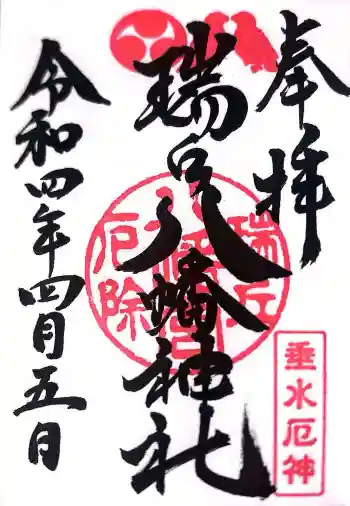 奉拝
瑞丘八幡神社
令和四年四月五日
瑞丘
八幡宮
厄除
垂水厄神